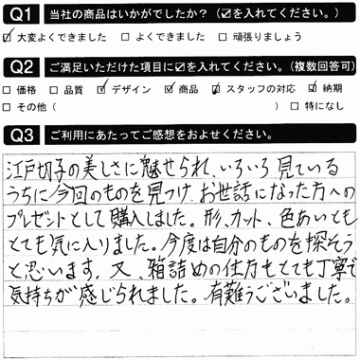 Q1 当社の商品はいかがでしたか？（☑を入れてください。）
☑ 大変よくできました □ よくできました □ 頑張りましょう
Q2 ご満足いただけた項目に☑を入れてください。（複数回答可）
□ 価格 □ 品質 ☑ デザイン ☑ 商品 ☑ スタッフの対応 ☑ 納期
□ その他（ ） □ 特になし
Q3 ご利用にあたってご感想をおよせください。
江戸切子の美しさに魅せられ、いろいろ見ている
うちに今回のものを見つけ、お世話になった方への
プレゼントとして購入しました。形、カット、色あいとも
とても気に入りました。今度は自分のものを探そう
と思います。又、箱詰めの仕方もとても丁寧で
気持ちが感じられました。有難うございました。